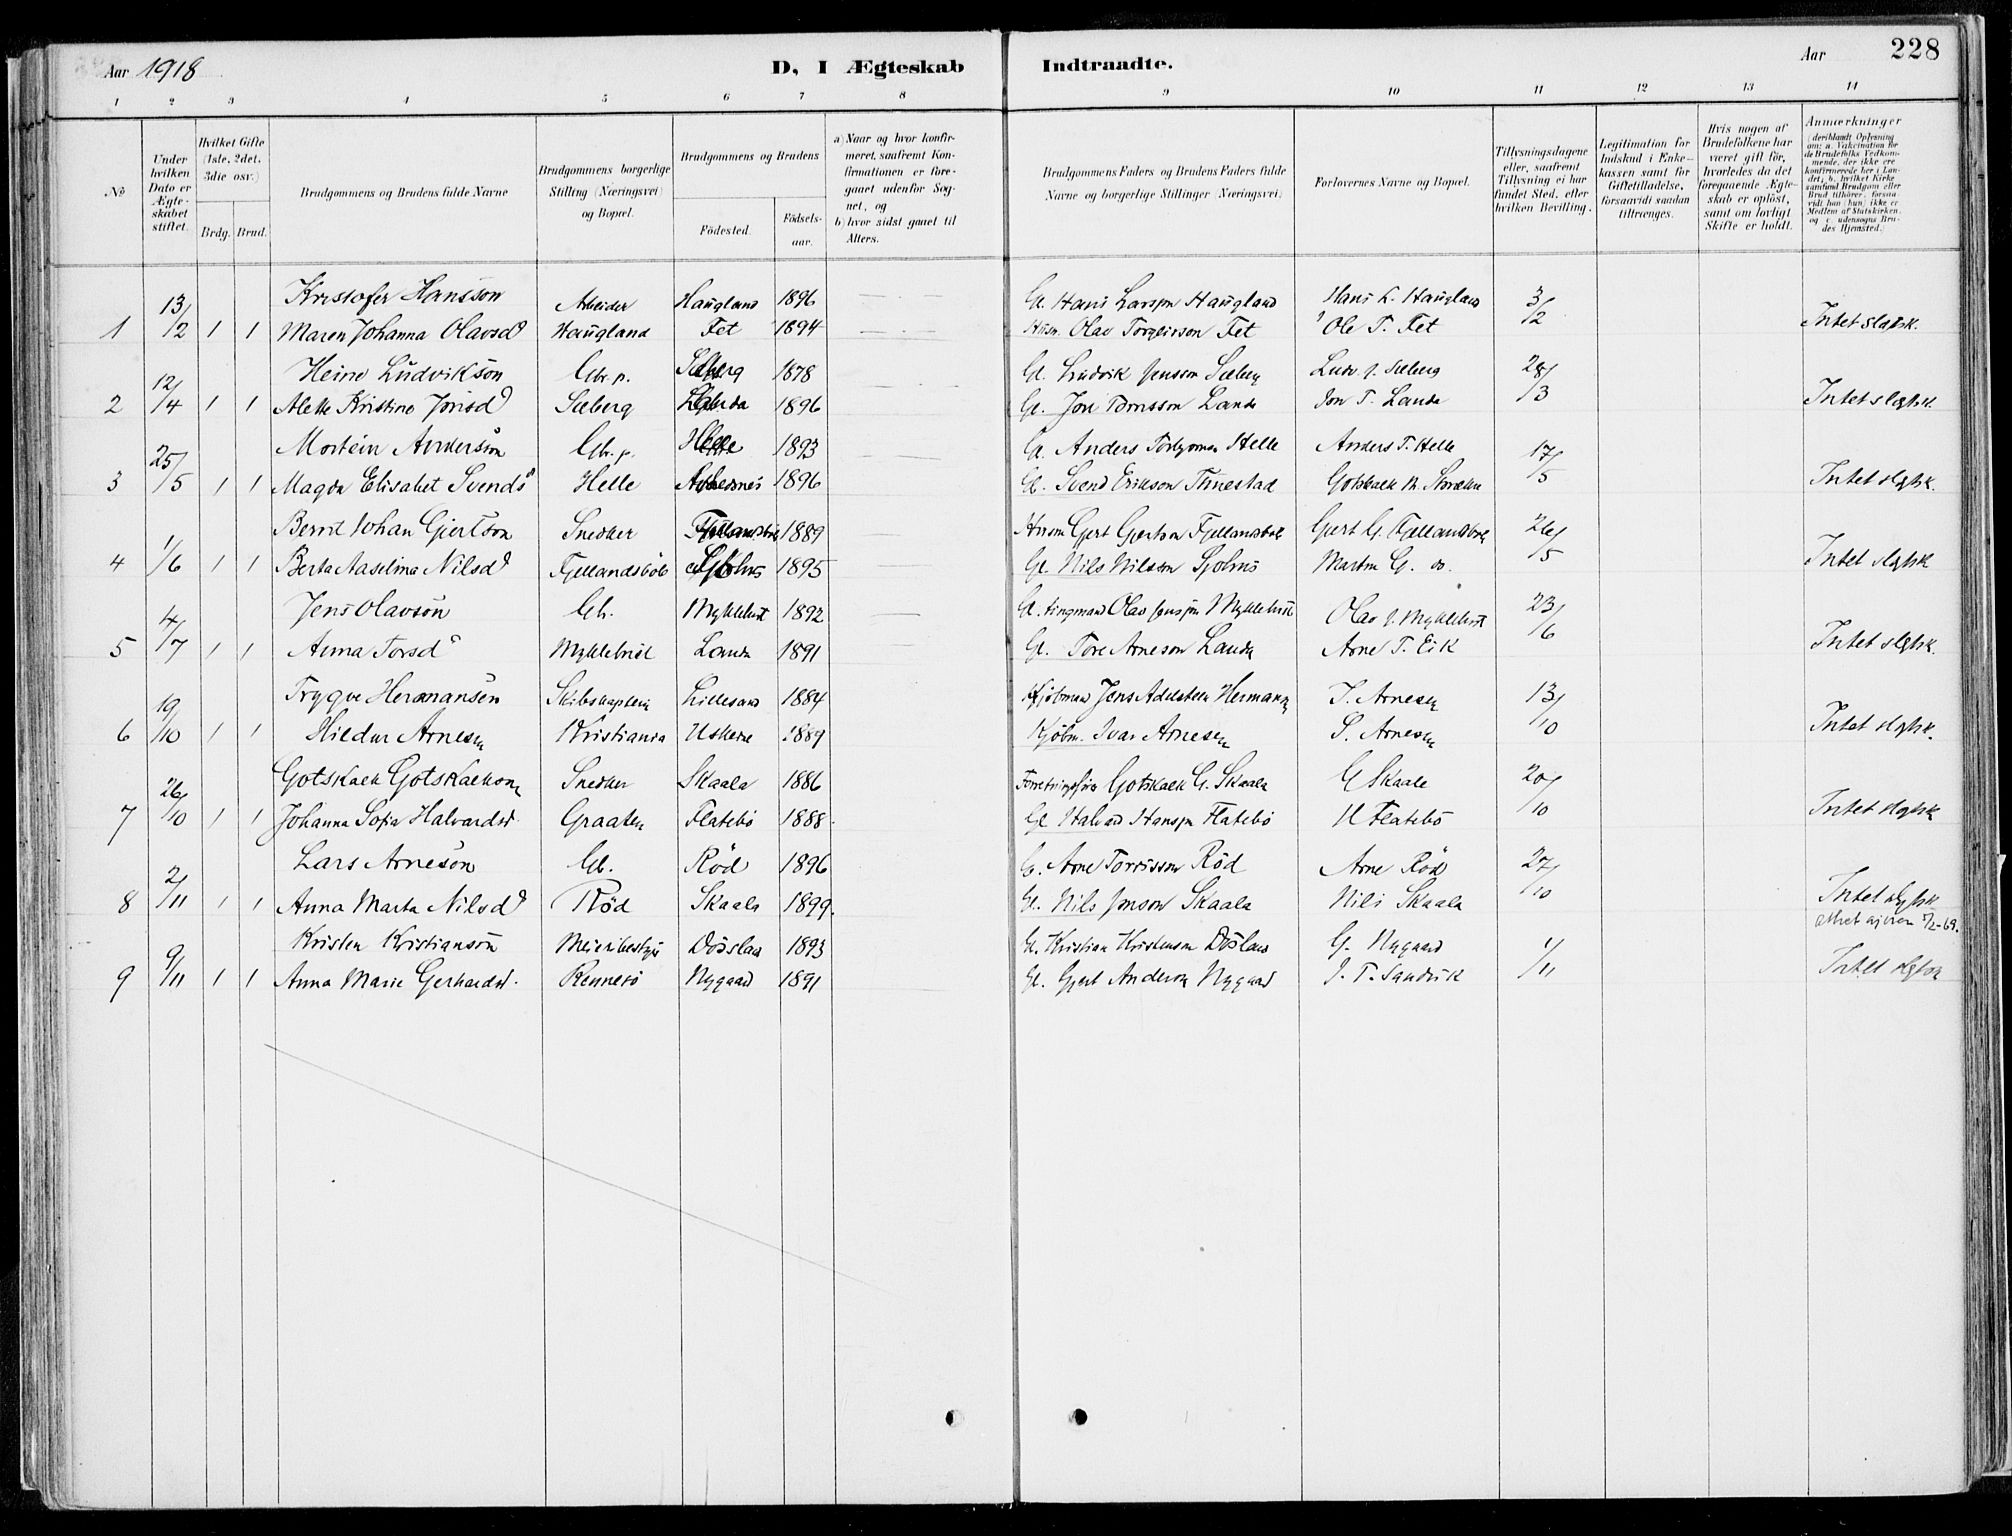 Aar 1918
D, I Ægteskab Indtraadte.
Aar 228
1 2 3 4 5 6 7 8 9 10 11 12 13 14
No
Under hvilken Dato er Ægteskabet stiftet.
Hvilket Gifte (1ste, 2det, 3die osv.)
Brdg. Brud.
Brudgommens og Brudens fulde Navne
Brudgommens borgerlige Stilling (Næringsvei) og Bopæl.
Brudgommens og Brudens
Födested. Födsels-aar.
a) Naar og hvor konfirmeret, saafremt Konfirmationen er foregaaet udenfor Sognet, og
b) hvor sidst gaaet til Alters.
Brudgommens Faders og Brudens Faders fulde Navne og borgerlige Stillinger (Næringsvei)
Forlovernes Navne og Bopæl.
Tillysningsdagene eller, saafremt Tillysning ei har fundet Sted, efter hvilken Bevilling.
Legitimation for Indskud i Enkekassen samt for Giftetilladelse, forsaavidt saadan tiltrænges.
Hvis nogen af Brudefolkene har været gift för, hvorledes da det foregaaende Ægteskab er oplöst, samt om lovligt Skifte er holdt.
Anmærkninger (deriblandt Oplysning om: a. Vakcination for de Brudefolks Vedkommende, der ikke ere konfirmerede her i Landet; b. hvilket Kirkesamfund Brudgom eller Brud tilhörer, forsaavidt han (hun) ikke er Medlem af Statskirken, og c. udensogns Brudes Hjemsted.)
13/ Kristofer Hansson Arbeider Haugland 1896 G. Hans Larssøn Haugland Hans L. Haugland 3/
1 /2 1 1 Maren Johanna Olavsd Haugland Fet 1894 Husm. Olav Torgeirson Fet Ole T. Fet /2 Intet slektsk.
12/ Heine Ludvikson Gbr. p. Sæberg 1878 G. Ludvik Jensson Sæberg Ludv J. Sæberg 28/
2 /4 1 1 Alette Kristine Jonsd Sæberg Landa 1896 G. Jon Tomsson Landa Jon T. Landa /3 Intet slegtsk.
25/ Mortein Anderson Gbr. p. Helle 1893 G. Anders Helle Anders T. Helle 17/
3 /5 1 1 Magda Elisabet Svends Helle 1896 G. Svend Erikson Tinestad Gotskalk /5 Intet slegtsk.
1/ Bernt Johan Gjertson Snedker 1889 Husm Gjert Gjertson Fjellandsbøk Gjert G. Fjellandsbøk 26/
4 /6 1 1 Berta Aaselina Nilsd Fjellandsbök 1895 G. Nils Nilsson Sjolnes Martin G. do. /5 Intet slegtsk
4/ Jens Olavson Gb. Myklebust 1892 Olav Myklebust Olav J. Myklebust 23/
5 /7 1 1 Anna Torsd Myklebust Landa 1891 G. Tore Arneson Landa Arne T. Eik /6 Intet slegtsk.
19/ Trygve Hermansen Skibskaptein Lillesand 1884 Kjöbmand Jens Adelsteen Hermansen I. Arnesen 13/
6 /10 1 1 Hildur Arnesen Kristiania Uskene 1889 Kjöbm. Ivar Arnesen S. Arnesen /10 Intet slegtsk.
26/ Gotskalk Gotskalkson Snedker Skaala 1886 Gotskalk G. Skaala G Skaala 20/
7 /10 1 1 Johanna Sofia Halvardsd. Graaten Flatebö 1888. G Halvard Hanssøn Flatebö H Flatebö /10 Intet slegtsk
2/ Lars Arneson Gb. Röd 1896 G. Arne Torrisson Röd Arne Röd 27/
8 /11 1 1 Anna Marta Nilsd Röd Skaala 1899. G. Nils Jonson Skaala Nils Skaala /10 Intet slegtsk
9/ Kristen Kristianson Meieribestyr Dösland 1893 G. Kristian Kristensen Dösland G. Nygaard 1/
9 /11 1 1 Anna Marie Gerhardsd. Rennesö Nygaard 1891 G. Anderson Nygaard J. T. Sandvik /11 Intet slegtsk